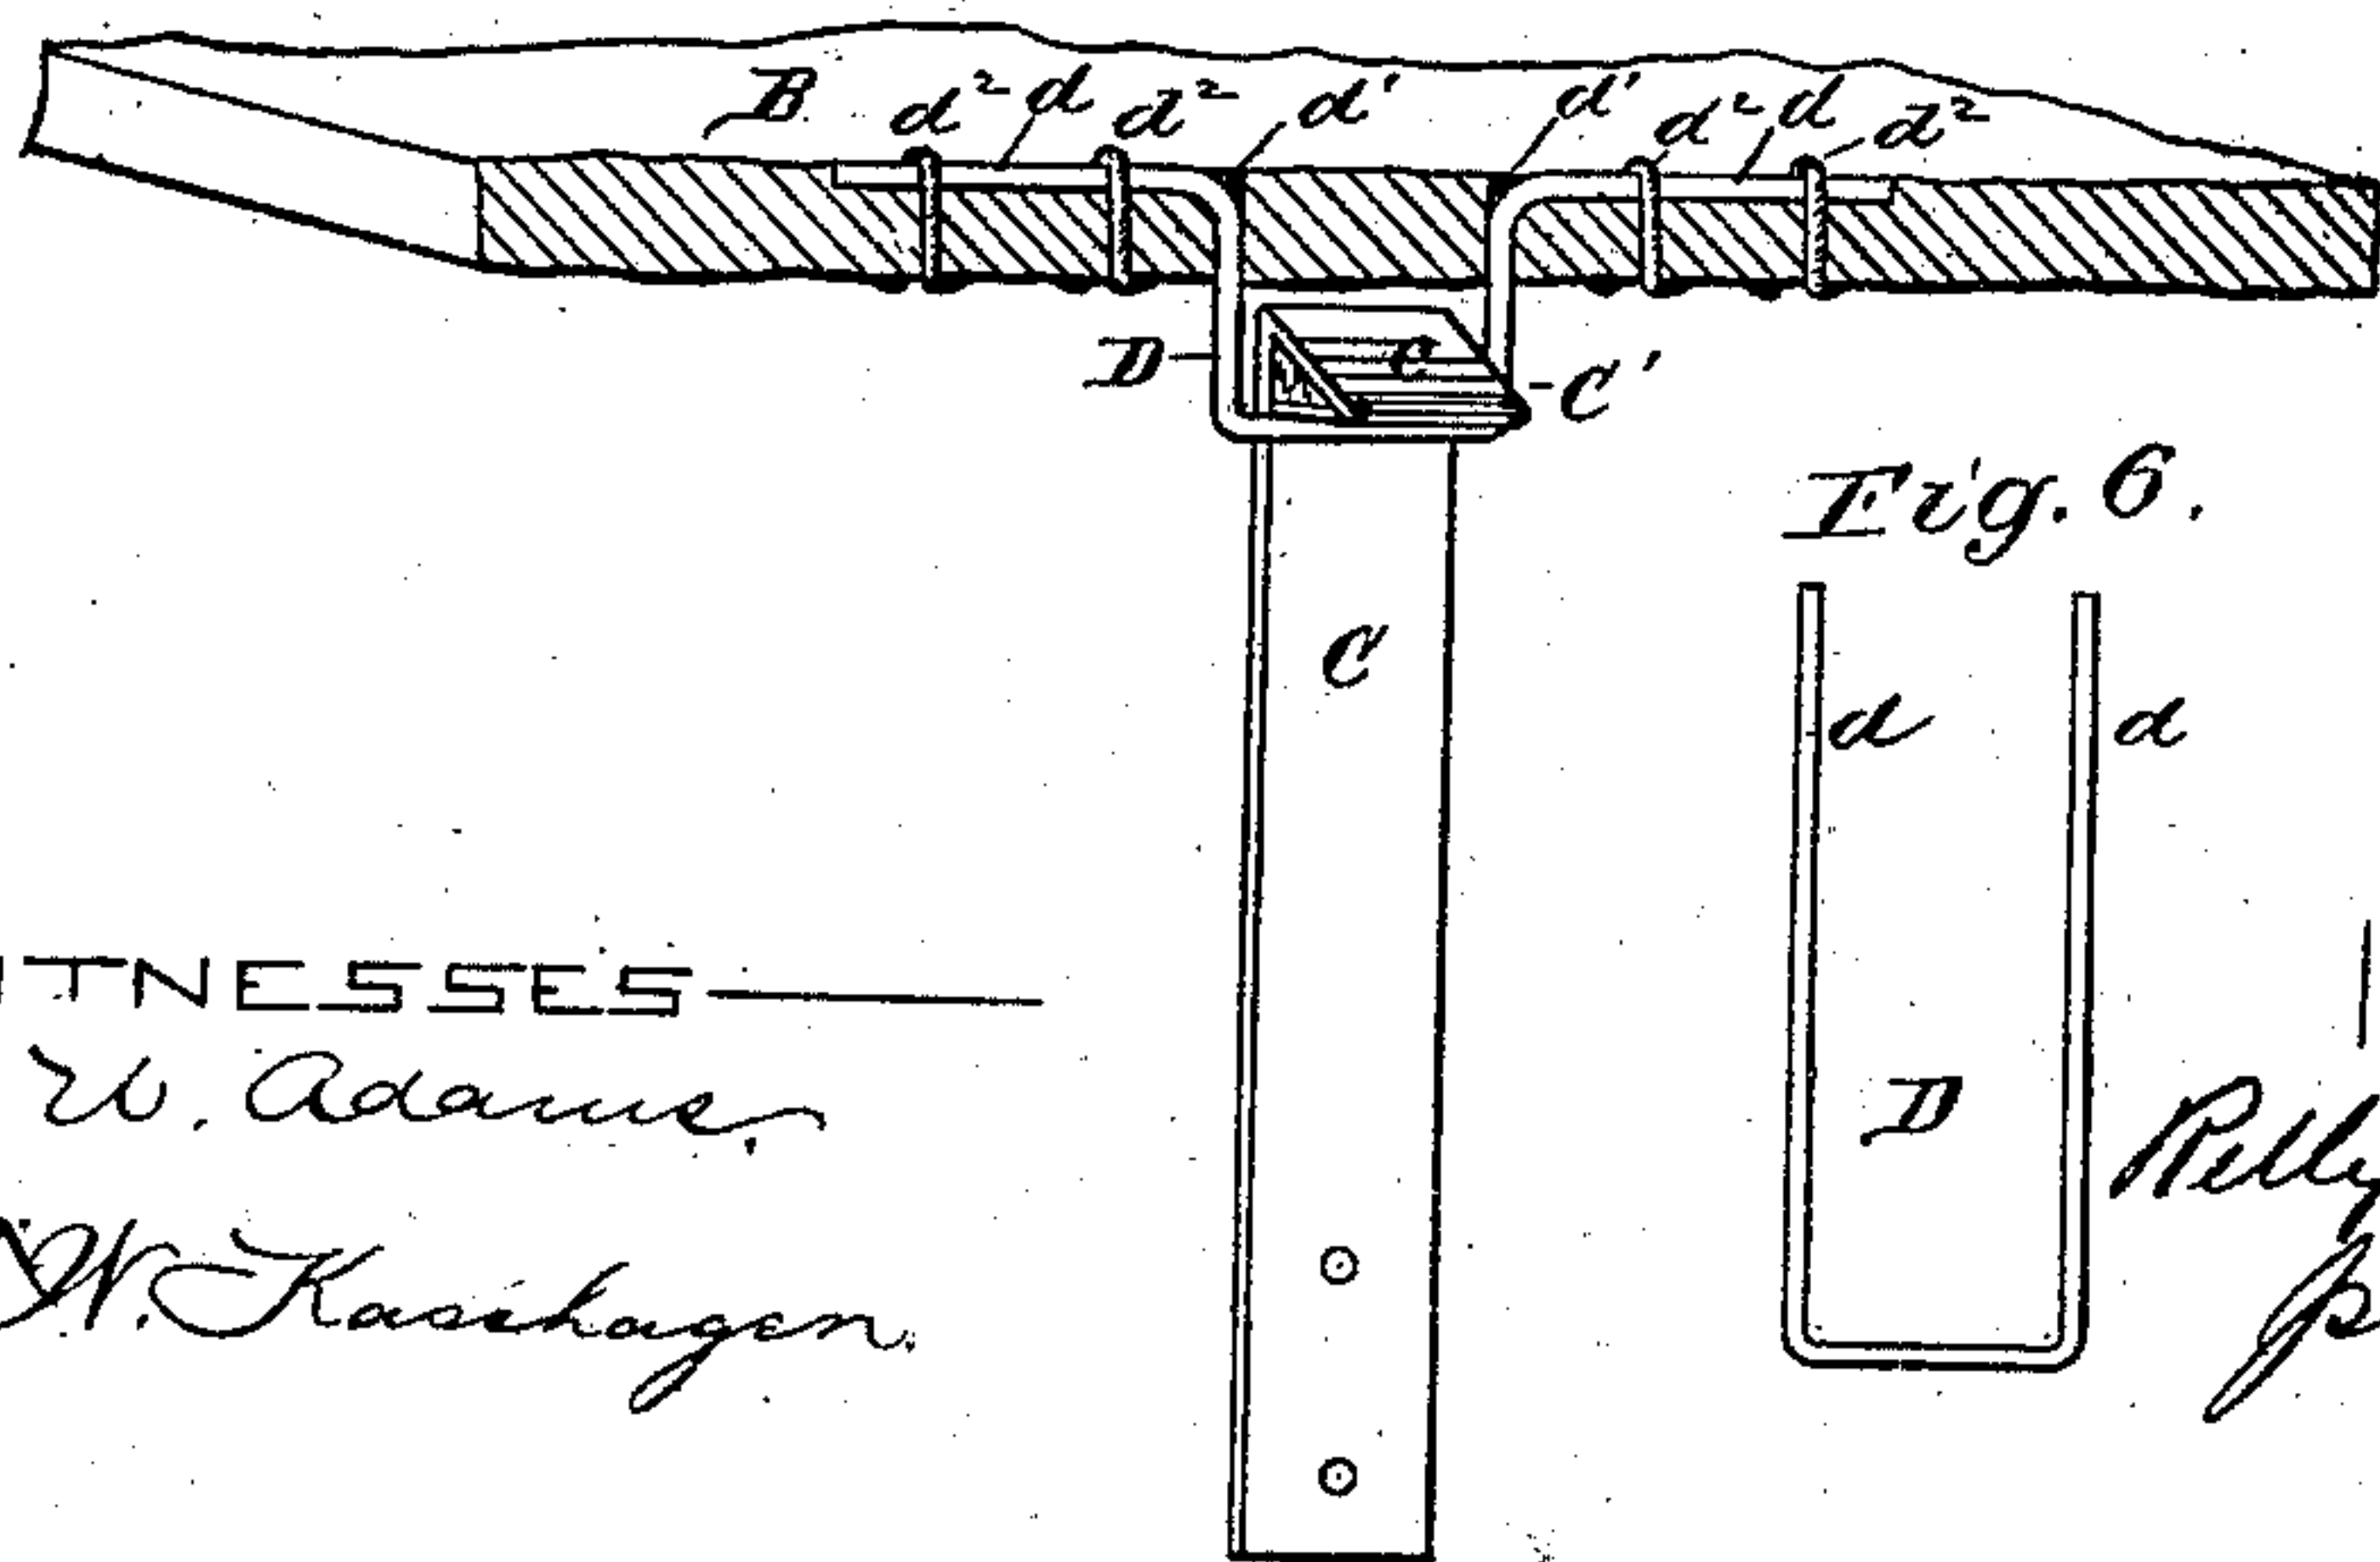 B d² d d² d' d' d² d d²
D C C'
Fig. 6.
C
d d
D
TNESSES
W. Adams,
W. Kasehagen.